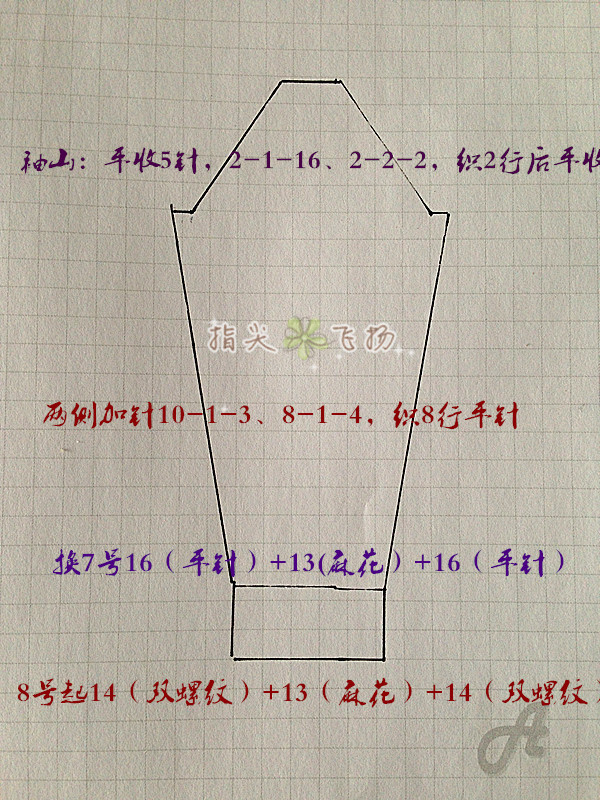 袖山：平收5针，2-1-16、2-2-2，织2行后平收
指尖飞扬
两侧加针10-1-3、8-1-4，织8行平针
换7号16（平针）+13(麻花）+16（平针）
8号起14（双螺纹）+13（麻花）+14（双螺纹）
A